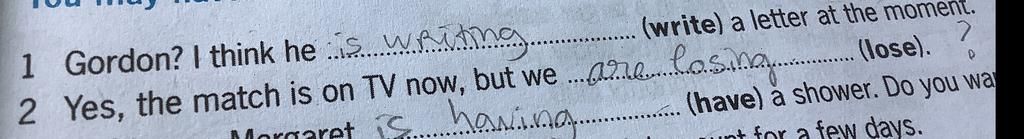 1 Gordon? I think he is writing (write) a letter at the moment.
2 Yes, the match is on TV now, but we are losing (lose). ?
Margaret is having (have) a shower. Do you
for a few days.